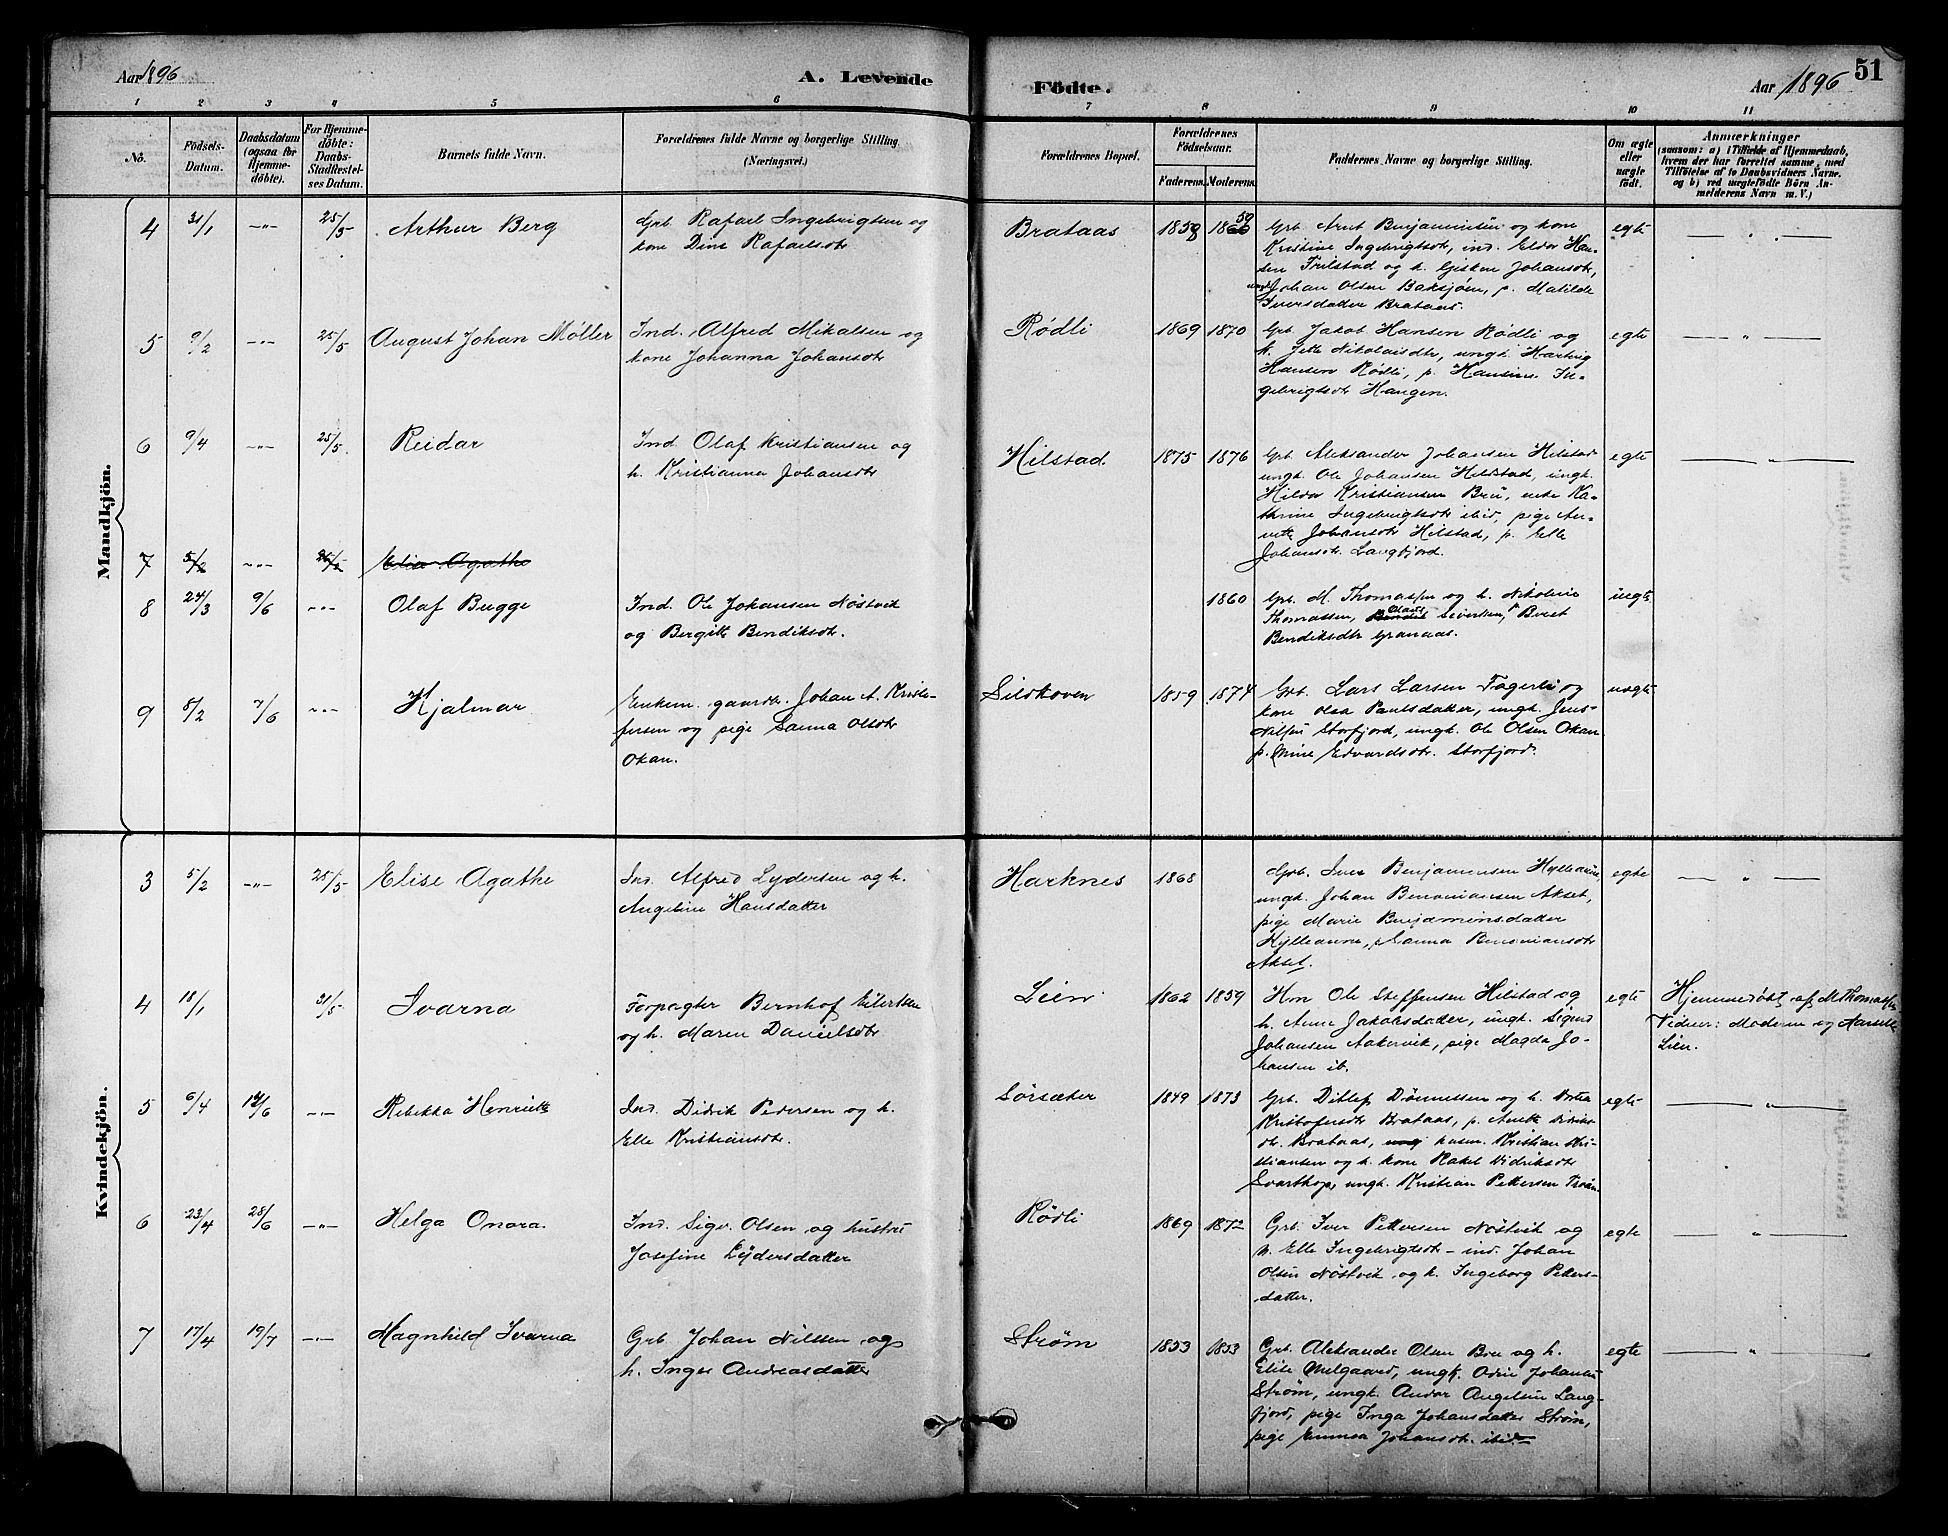 Aar 1896
A. Levende
Födte.
Aar 1896
51
1 2 3 4 5 6 7 8 9 10 11
No.
Födsels-
Datum.
Daabsdatum
(ogsaa for
Hjemme-
döbte).
For Hjemme-
döbte:
Daabs-
Stadfæstel-
ses Datum.
Barnets fulde Navn.
Forældrenes fulde Navne og borgerlige Stilling
(Næringsvei.)
Forældrenes Bopæl.
Forældrenes
Födselsaar.
Faderens.
Moderens.
Faddernes Navne og borgerlige Stilling.
Om ægte
eller
uægte
født.
Anmærkninger
(saasom: a) i Tilfælde af Hjemmedaab,
hvem der har forrettet samme, med
Tilføielse af to Daabsvidners Navne.
og b) ved uægtefödte Börn An-
melderens Navn m. V.)
Mandkjön.
4 31/1 -"- 25/5 Arthur Berg
Grb. Rafael Ingebrigtsen og
kone Dine Rafaelsdtr
Brataas 1858 1866 59
Grb. Arnt Benjaminsen og kone
Kristine Ingebrigtsdtr, ind. Eldor Han-
sen Trilstad og h. Gisken Johansdtr,
ungk. Johan Olsen Baksjøen, p. Matilde
Iversdatter Brataas.
egte — " —
5 9/2 -"- 25/5 August Johan Møller
Ind. Alfred Mikalsen og
kone Johanna Johansdtr
Rødli 1869 1870
Grb. Jakob Hansen Rødli og
k. Jette Nikolaisdtr, ungk. Hartvig
Hansen Rødli, p. Hansine In-
gebrigtsdtr Haugen.
egte — " —
6 9/4 -"- 25/5. Reidar
Ind. Olaf Kristiansen og
h. Kristianna Johansdtr
Hilstad 1875 1876
Grb. Aleksander Johansen Hilstad
ungk. Ole Johansen Hildstad, ungk.
Hildor Kristiansen Bru, enke Ka-
thrine Ingebrigtsdtr ibid, pige An-
nette Johansdtr Hilstad, p. Elle
Johansdtr. Langfjord.
egte — " —
7 5/2 -"- 25/5 Elise Agathe
8 24/3 9/6 -"- Olaf Bugge
Ind. Ole Johansen Nøstvik
og Bergitte Bendiksdtr.
1860
Grb. M. Thomassen og h. Nikoline
Thomassen, Sivertsen, p Beret
Bendiksdtr Granaas.
uegte
9 8/2 7/6 -"- Hjalmar
Enkem. gaardbr. Johan A. Kristo-
fersen og pige Sanna Olsdtr
Okan.
Sildkoven 1859 1874
Grb. Lars Larsen Fagerli og
kone Olsa Paulsdatter, ungk. Jens
Nilsen Storfjord, ungk. Ole Olsen Okan
p. Mine Edvardsdtr. Storfjord.
uegte
Kvindekjön.
3 5/2 -"- 25/5 Elise Agathe
Ind. Alfred Lydersen og h.
Angeline Hansdatter
Harknes 1868
Grb. Iver Benjaminsen Hylleaune,
ungk. Johan Benoniansen Akset,
pige Marie Benjaminsdatter
Hylleaune, p. Sanna Benoniansdtr
Akset.
egte — " —
4 18/1 31/5 Ivarna
Forpagter Bernhof Eilertsen
og h. Maren Danielsdtr
Lien 1862 1859
Hm Ole Steffensen Hilstad og
h. Anne Jakobsdatter, ungk. Sigurd
Johansen Aakervik, pige Magda Jo-
hansen ib.
egte
Hjemmedøbt af M. Thomassen
Vidner: Moderen og
Lien.
5 6/4 14/6 -"- Rebekka Henriette
Ind. Didrik Pedersen og h.
Elle Kristiansdtr.
Sørsæter 1849 1873
Grb. Ditlef Dønnessen og h. Notea
Kristofersdtr Brataas, p. Anette Didriks-
dtr. Brataas, ung husm. Kristian Kri-
stiansen og h. kone Rakel Didriksdtr
Svarthop, ungk. Kristian Pettersen
egte — " —
6 23/4 28/6 -"- Helga Onora.
Ind. Sigv. Olsen og hustru
Josefine Lydersdatter
Rødli 1869 1872
Grb. Iver Pettersen Nøstvik og
h. Elle Ingebrigtsdtr - ind. Johan
Olsen Nøstvik og h. Ingeborg Petters-
datter.
egte — " —
7 17/4 19/7 -"- Magnhild Ivarna
Grb. Johan Nilssen og
h. Inger Andreasdatter
Strøm 1853 1853
Grb. Aleksander Olsen Bru og h.
Elise Melgaard, ungk. Odin Johansen
Strøm, ungk. Andor Angelsen Lang-
fjord, pige Inga Johansdatter Strøm,
pige Emma Johansdtr. ibid
egte — " —